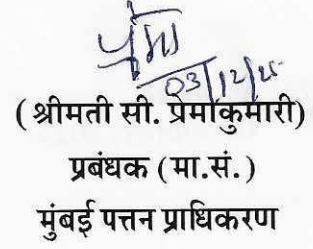 प्रेमा
03/12/25
(श्रीमती सी. प्रेमाकुमारी)
प्रबंधक (मा.सं.)
मुंबई पत्तन प्राधिकरण